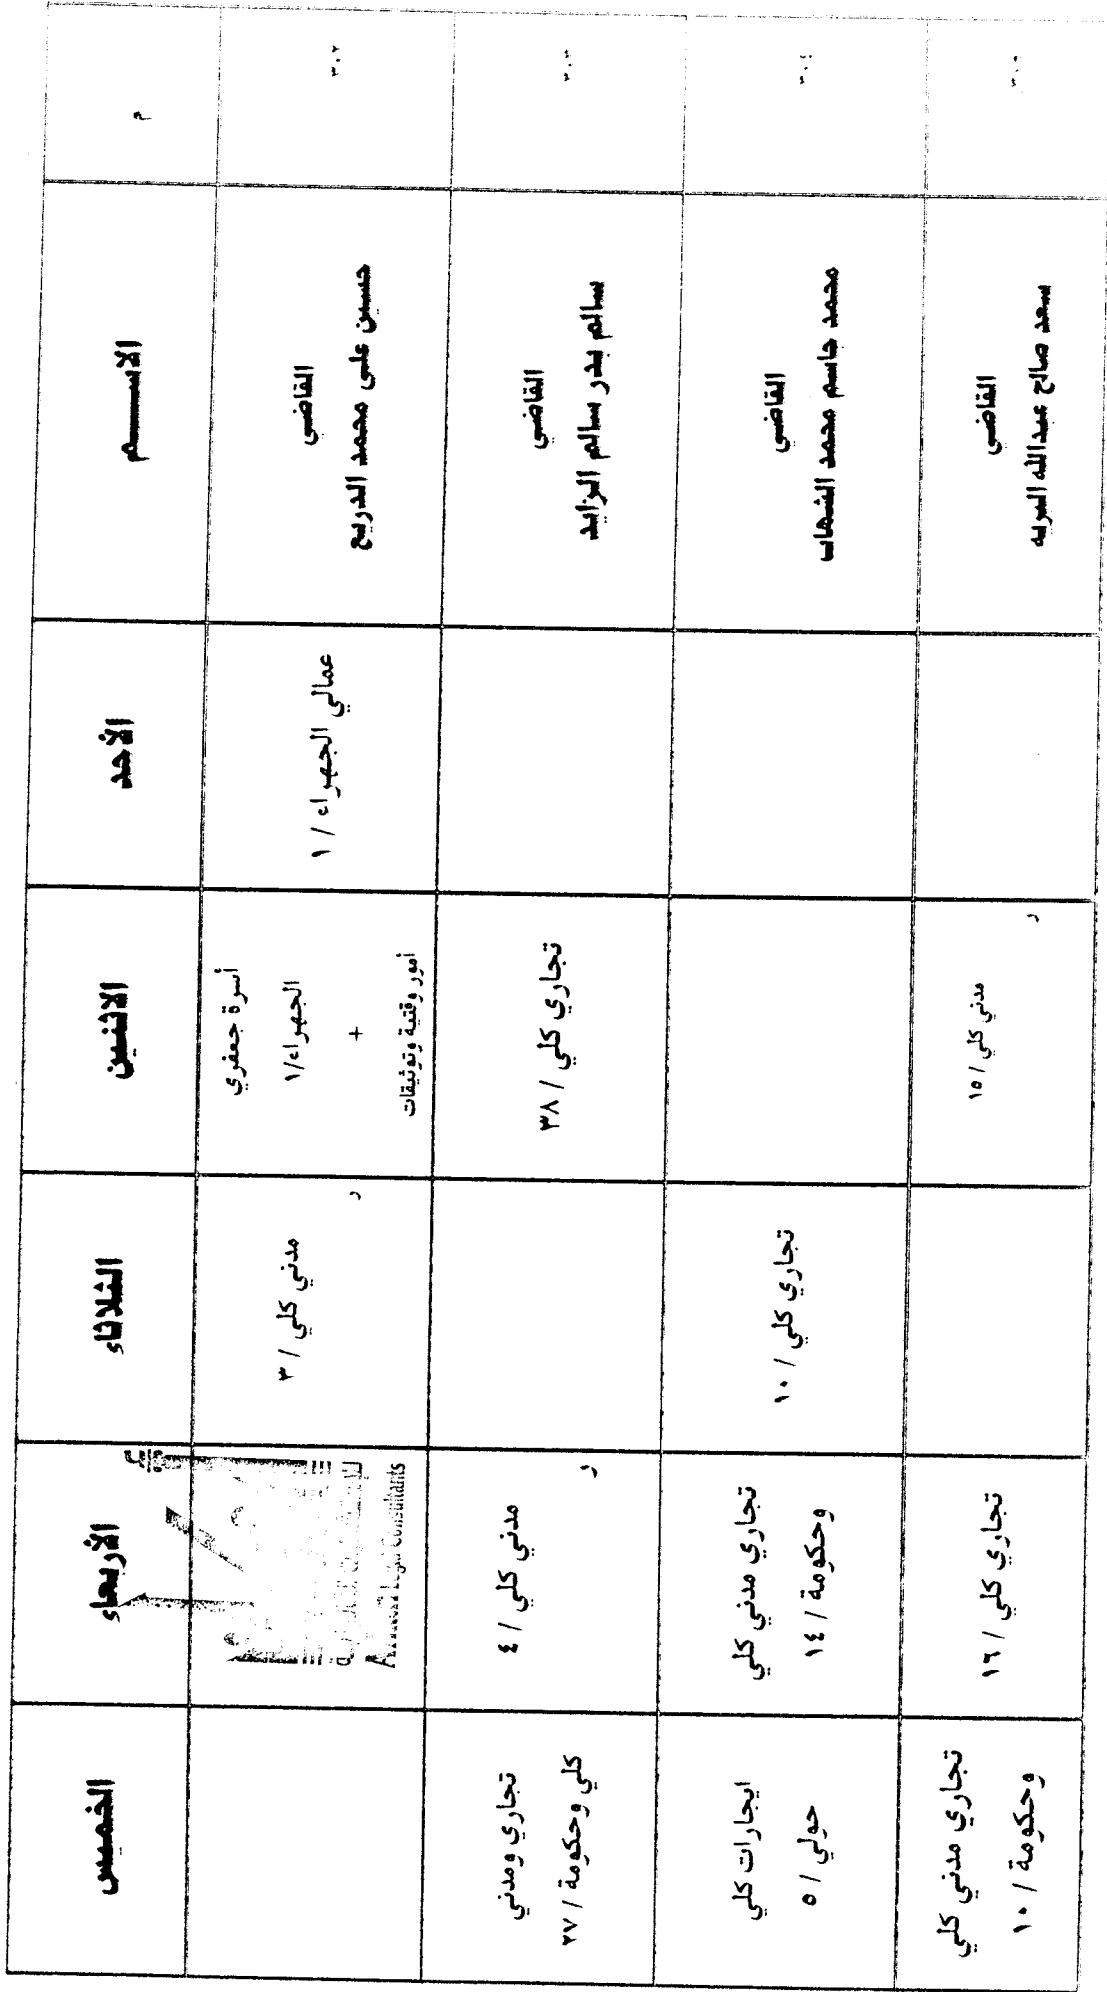 م
الاســــم
الأحد
الاثنين
الثلاثاء
الأربعاء
الخميس
٣٠٢
القاضي
حسين على محمد الدريع
عمالي الجهراء / ١
أسرة جعفري
الجهراء/١
+
أمور وقتية وتوثيقات
مدني كلي / ٣
ر
Legal Consultants
٣٠٣
القاضي
سالم بدر سالم الزايد
تجاري كلي / ٣٨
مدني كلي / ٤
ر
تجاري ومدني
كلي وحكومة / ٢٧
٣٠٤
القاضي
محمد جاسم محمد الشهاب
تجاري كلي / ١٠
تجاري مدني كلي
وحكومة / ١٤
ايجارات كلي
حولي / ٥
القاضي
سعد صالح عبدالله
مدني كلي / ١٥
ر
تجاري كلي / ١٦
تجاري مدني كلي
وحكومة / ١٠